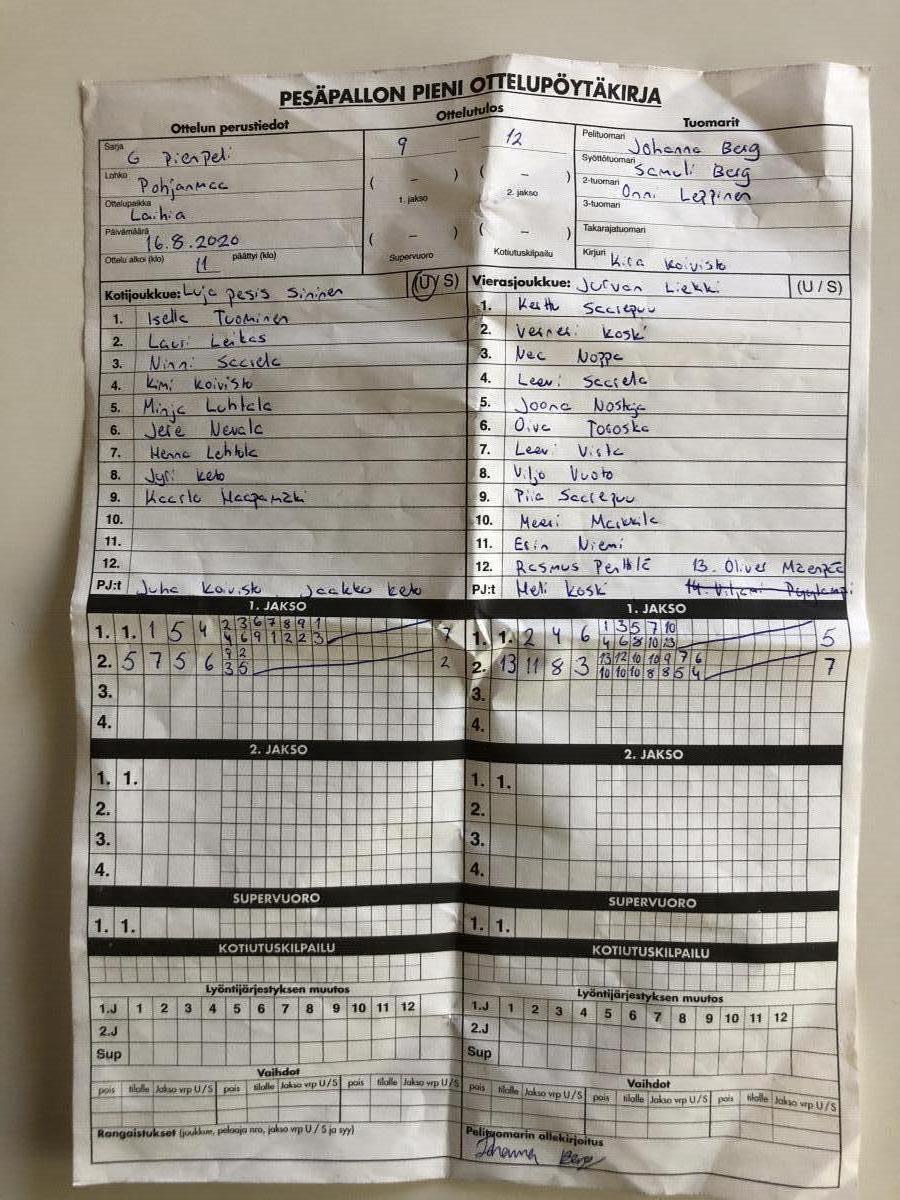 PESÄPALLON PIENI OTTELUPÖYTÄKIRJA
Ottelun perustiedot
Ottelutulos
Tuomarit
Sarja G Pienpeli
Lohko Pohjanmaa
Ottelupaikka Laihia
Päivämäärä 16.8.2020
Ottelu alkoi (klo) 11 päättyi (klo)
9 — 12
( – ) ( – )
1. jakso 2. jakso
( – ) ( – )
Supervuoro Kotiutuskilpailu
Pelituomari Johanna Berg
Syöttötuomari Samuli Berg
2-tuomari Onni Leppinen
3-tuomari
Takarajatuomari
Kirjuri Kira Koivisto
Kotijoukkue: Luja pesis Sininen (U/S)
1. Isella Tuominen
2. Lauri Leikas
3. Ninni Saarela
4. Kimi Koivisto
5. Minja Luhtala
6. Jere Nevala
7. Henna Lehtola
8. Jyri Keto
9. Kaarlo Haapamäki
10.
11.
12.
PJ:t Juha Koivisto Jaakko Keto
Vierasjoukkue: Jurvan Liekki (U / S)
1. Kerttu Saarepuu
2. Verneri Koski
3. Nea Noppa
4. Leevi Saarela
5. Joona
6. Oiva
7. Leevi Vista
8. Viljo Vuoto
9. Piia Saarepuu
10. Meeri Markkila
11. Erin Niemi
12. Rasmus Penttilä 13. Oliver Mäenpää
PJ:t Meli Koski 14. Viljami
1. JAKSO
1. 1. 1 5 4 2 3 6 7 8 9 1 7
4 6 9 1 2 2 3
2. 5 7 5 6 9 2 2
3 5
3.
4.
2. JAKSO
1. 1.
2.
3.
4.
SUPERVUORO
1. 1.
KOTIUTUSKILPAILU
Lyöntijärjestyksen muutos
1.J 1 2 3 4 5 6 7 8 9 10 11 12
2.J
Sup
Vaihdot
pois tilalle Jakso vrp U / S pois tilalle Jakso vrp U / S pois tilalle Jakso vrp U / S
Rangaistukset (joukkue, pelaaja nro, jakso vrp U / S ja syy)
1. JAKSO
1. 1. 2 4 6 1 3 5 7 10 5
4 6 8 10 13
2. 13 11 8 3 13 12 10 10 9 7 6 7
10 10 10 8 8 5 4
3.
4.
2. JAKSO
1. 1.
2.
3.
4.
SUPERVUORO
1. 1.
KOTIUTUSKILPAILU
Lyöntijärjestyksen muutos
1.J 1 2 3 4 5 6 7 8 9 10 11 12
2.J
Sup
Vaihdot
pois tilalle Jakso vrp U / S pois tilalle Jakso vrp U / S pois tilalle Jakso vrp U / S
Pelituomarin allekirjoitus
Johanna Berg